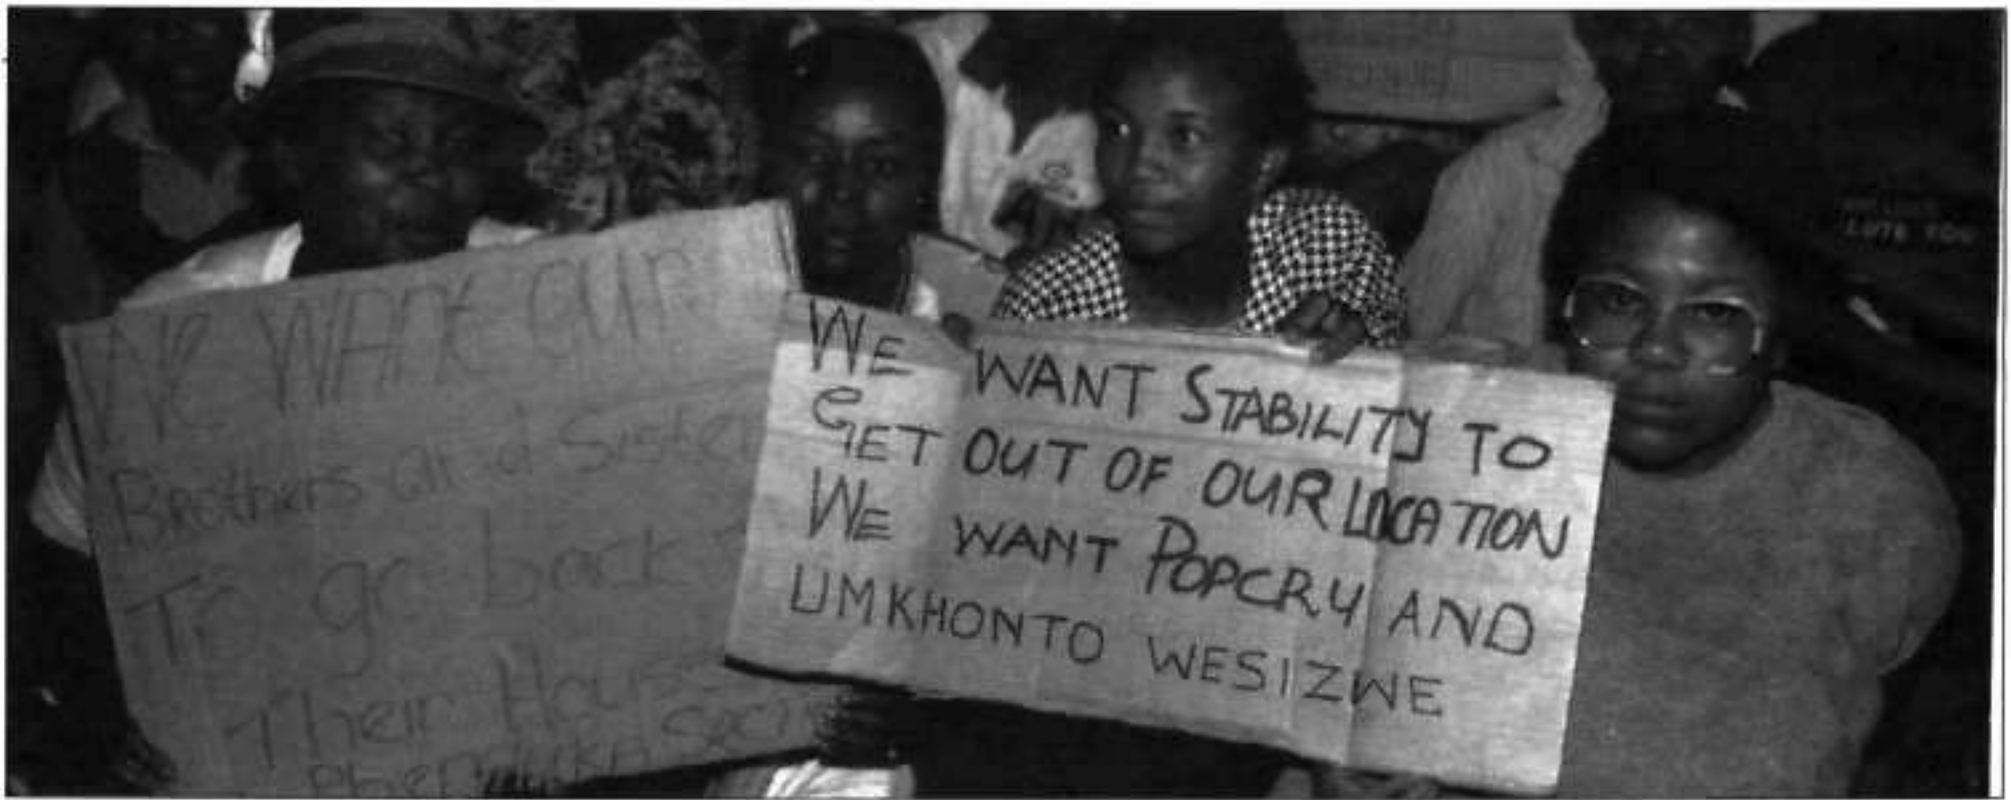 We WANt our
Brothers and Sister
To go back
Their Hou
WE WANT STABILITY TO
GET OUT OF OUR LOCATION
WE WANT POPCRU AND
UMKHONTO WESIZWE